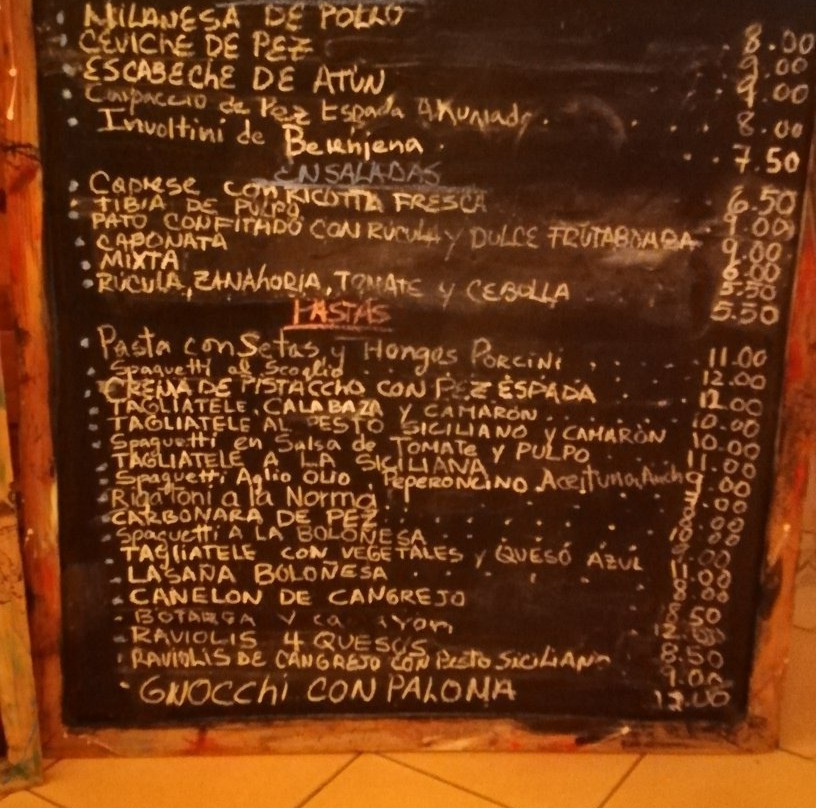 MILANESA DE POLLO 8.00
CEVICHE DE PEZ 9.00
ESCABECHE DE ATÚN 9.00
Carpaccio de Pez Espada Ahumado 8.00
Involtini de Berenjena 7.50
ENSALADAS
Caprese con RICOTTA FRESCA 6.50
TIBIA DE PULPO 9.00
PATO CONFITADO CON RÚCULA Y DULCE FRUTABOMBA 9.00
CAPONATA 6.00
MIXTA 5.50
RÚCULA, ZANAHORIA, TOMATE Y CEBOLLA 5.50
PASTAS
Pasta con Setas y Hongos Porcini 11.00
Spaguetti al Scoglio 12.00
CREMA DE PISTACCHO CON PEZ ESPADA 12.00
TAGLIATELE, CALABAZA Y CAMARÓN 10.00
TAGLIATELE AL PESTO SICILIANO Y CAMARÓN 10.00
Spaguetti en Salsa de TOMATE Y PULPO 11.00
TAGLIATELE A LA SICILIANA
Spaguetti Aglio OLIO, PEPERONCINO Aceituna, Anch 9.00
Rigatoni a la Norma
CARBONARA DE PEZ
Spaguetti A LA BOLOÑESA
TAGLIATELE CON VEGETALES Y QUESO AZUL
LASAÑA BOLOÑESA 11.00
CANELON DE CANGREJO
BOTARGA Y
RAVIOLIS 4 QUESOS 8.50
RAVIOLIS DE CANGREJO CON PESTO SICILIANO 9.00
GNOCCHI CON PALOMA 12.00